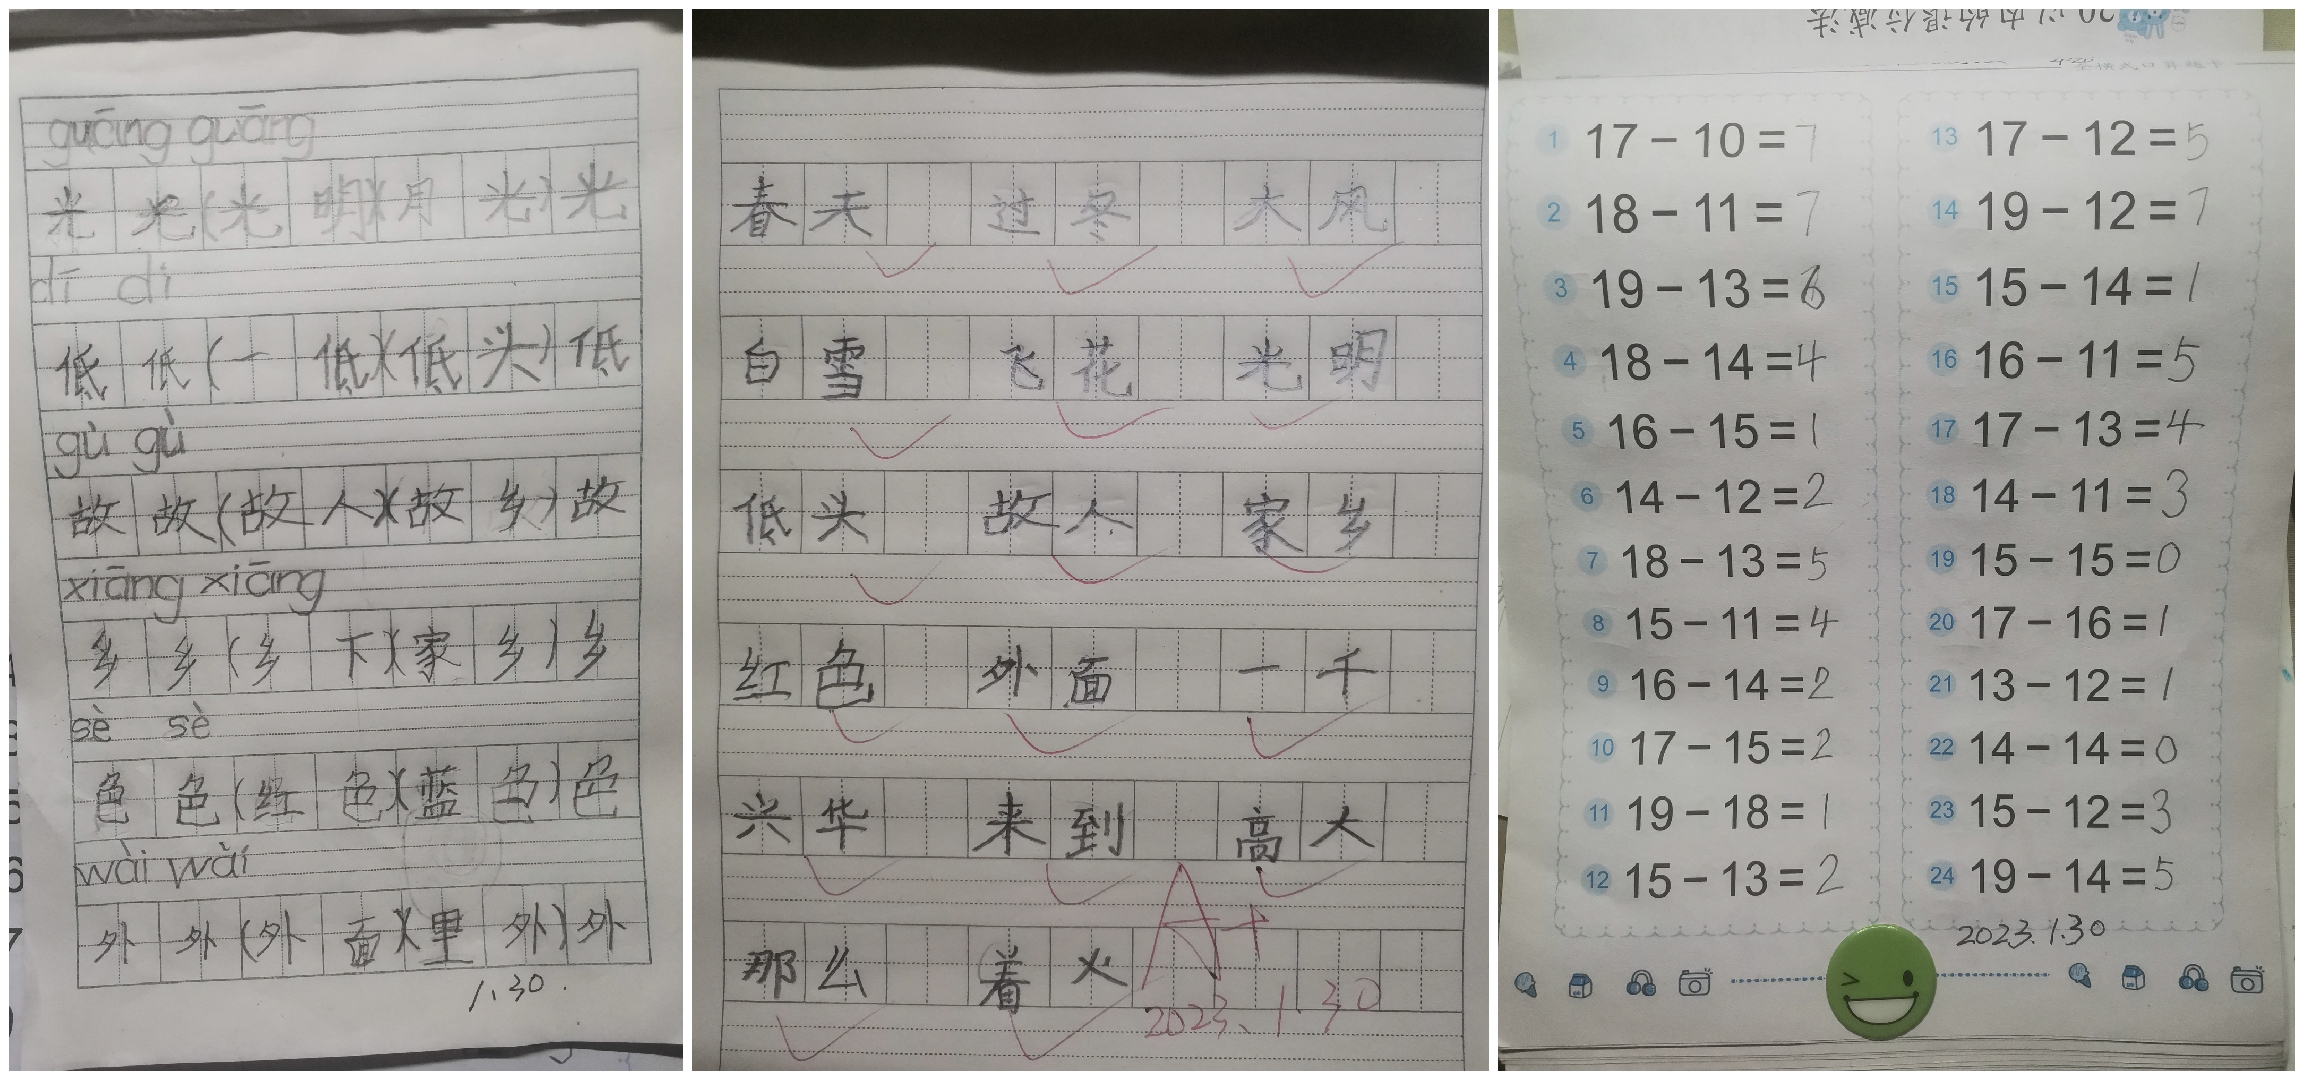 guāng guāng
光 光 (光 明)(月 光) 光
dī dī
低 低 (一 低)(低 头) 低
gù gù
故 故 (故 人)(故 乡) 故
xiāng xiāng
乡 乡 (乡 下)(家 乡) 乡
sè sè
色 色 (红 色)(蓝 色) 色
wài wài
外 外 (外 面)(里 外) 外
1.30.
春天 过冬 大风
白雪 飞花 光明
低头 故人 家乡
红色 外面 一千
兴华 来到 高大
那么 着火
A+
2023.1.30
20以内的退位减法
1 17-10=7
2 18-11=7
3 19-13=6
4 18-14=4
5 16-15=1
6 14-12=2
7 18-13=5
8 15-11=4
9 16-14=2
10 17-15=2
11 19-18=1
12 15-13=2
13 17-12=5
14 19-12=7
15 15-14=1
16 16-11=5
17 17-13=4
18 14-11=3
19 15-15=0
20 17-16=1
21 13-12=1
22 14-14=0
23 15-12=3
24 19-14=5
2023.1.30